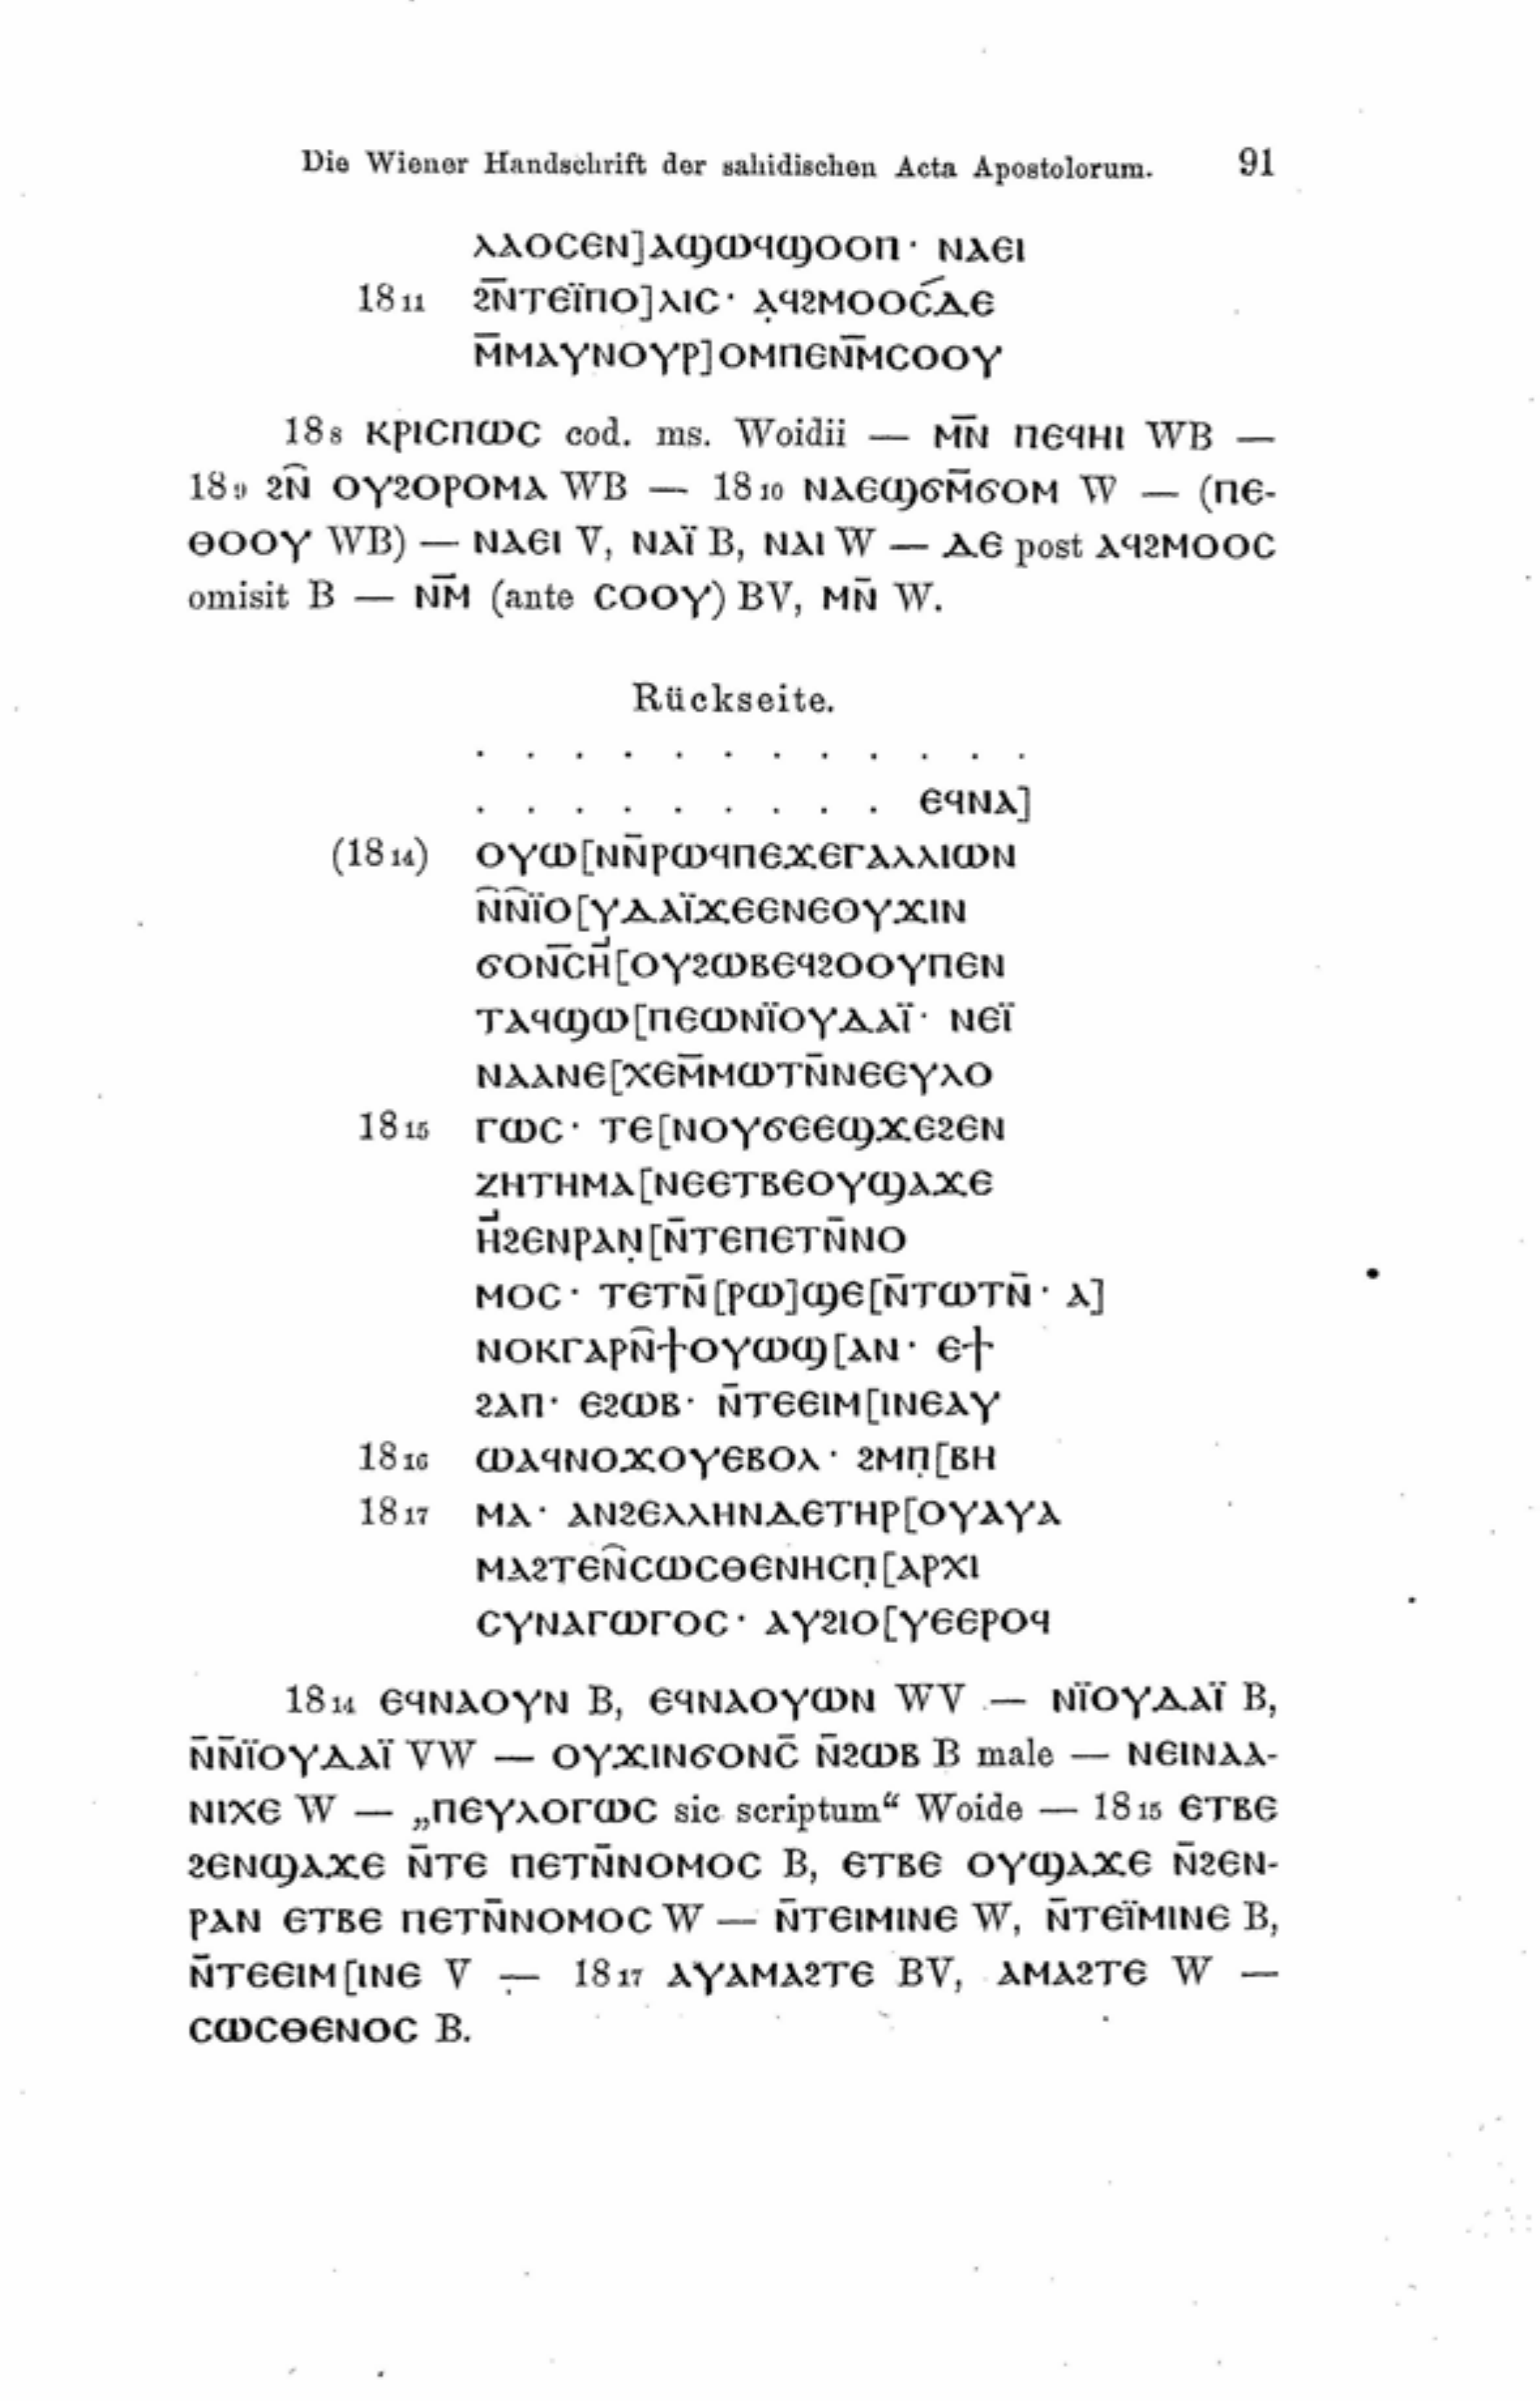 Die Wiener Handschrift der sahidischen Acta Apostolorum. 91
ⲗⲁⲟⲥⲉⲛ]ⲁϣⲱϥϣⲟⲟⲡ· ⲛⲁⲉⲓ
18 11 ϩⲛ̅ⲧⲉⲓ̈ⲡⲟ]ⲗⲓⲥ· ⲁ̣ϥϩⲙⲟⲟⲥ́ⲇⲉ
ⲙ̅ⲙⲁⲩⲛⲟⲩⲣ]ⲟⲙⲡⲉⲛⲙ̅ⲥⲟⲟⲩ
18 8 ⲕⲣⲓⲥⲡⲱⲥ cod. ms. Woidii — ⲙⲛ̅ ⲡⲉϥⲏⲓ WB —
18 9 ϩⲛ̑ ⲟⲩϩⲟⲣⲟⲙⲁ WB — 18 10 ⲛⲁⲉϣϭⲙ̅ϭⲟⲙ W — (ⲡⲉ-
ⲑⲟⲟⲩ WB) — ⲛⲁⲉⲓ V, ⲛⲁⲓ̈ B, ⲛⲁⲓ W — ⲇⲉ post ⲁϥϩⲙⲟⲟⲥ
omisit B — ⲛⲙ̅ (ante ⲥⲟⲟⲩ) BV, ⲙⲛ̅ W.
Rückseite.
. . . . . . . . . . . .
. . . . . . . . . ⲉϥⲛⲁ]
(18 14) ⲟⲩⲱ[ⲛⲛ̅ⲣⲱϥⲡⲉϫⲉⲅⲁⲗⲗⲓⲱⲛ
ⲛ̑ⲛ̑ⲓ̈ⲟ[ⲩⲇⲁⲓ̈ϫⲉⲉⲛⲉⲟⲩϫⲓⲛ
ϭⲟⲛⲥ̅ⲏ̓[ⲟⲩϩⲱⲃⲉϥϩⲟⲟⲩⲡⲉⲛ
ⲧⲁϥϣⲱ[ⲡⲉⲱⲛⲓ̈ⲟⲩⲇⲁⲓ̈· ⲛⲉⲓ̈
ⲛⲁⲁⲛⲉ[ⲭⲉⲙ̅ⲙⲱⲧⲛ̅ⲛⲉⲉⲩⲗⲟ
18 15 ⲅⲱⲥ· ⲧⲉ[ⲛⲟⲩϭⲉⲉϣϫⲉϩⲉⲛ
ⲍⲏⲧⲏⲙⲁ[ⲛⲉⲉⲧⲃⲉⲟⲩϣⲁϫⲉ
ⲏ̓ϩⲉⲛⲣⲁⲛ̣[ⲛ̅ⲧⲉⲡⲉⲧⲛ̅ⲛⲟ
ⲙⲟⲥ· ⲧⲉⲧⲛ̅[ⲣⲱ]ϣⲉ[ⲛ̅ⲧⲱⲧⲛ̅· ⲁ]
ⲛⲟⲕⲅⲁⲣⲛ̑ϯⲟⲩⲱϣ[ⲁⲛ· ⲉϯ
ϩⲁⲡ· ⲉϩⲱⲃ· ⲛ̅ⲧⲉⲉⲓⲙ[ⲓⲛⲉⲁⲩ
18 16 ⲱⲁϥⲛⲟϫⲟⲩⲉⲃⲟⲗ· ϩⲙⲡ̣[ⲃⲏ
18 17 ⲙⲁ· ⲁⲛϩⲉⲗⲗⲏⲛⲇⲉⲧⲏⲣ[ⲟⲩⲁⲩⲁ
ⲙⲁϩⲧⲉⲛ̑ⲥⲱⲥⲑⲉⲛⲏⲥⲡ̣[ⲁⲣⲭⲓ
ⲥⲩⲛⲁⲅⲱⲅⲟⲥ· ⲁⲩϩⲓⲟ[ⲩⲉⲉⲣⲟϥ
18 14 ⲉϥⲛⲁⲟⲩⲛ B, ⲉϥⲛⲁⲟⲩⲱⲛ WV — ⲛⲓ̈ⲟⲩⲇⲁⲓ̈ B,
ⲛ̅ⲛ̅ⲓ̈ⲟⲩⲇⲁⲓ̈ VW — ⲟⲩϫⲓⲛϭⲟⲛⲥ̅ ⲛ̅ϩⲱⲃ B male — ⲛⲉⲓⲛⲁⲁ-
ⲛⲓⲭⲉ W — „ⲡⲉⲩⲗⲟⲅⲱⲥ sic scriptum“ Woide — 18 15 ⲉⲧⲃⲉ
ϩⲉⲛϣⲁϫⲉ ⲛ̅ⲧⲉ ⲡⲉⲧⲛ̅ⲛⲟⲙⲟⲥ B, ⲉⲧⲃⲉ ⲟⲩϣⲁϫⲉ ⲛ̅ϩⲉⲛ-
ⲣⲁⲛ ⲉⲧⲃⲉ ⲡⲉⲧⲛ̅ⲛⲟⲙⲟⲥ W — ⲛ̅ⲧⲉⲓⲙⲓⲛⲉ W, ⲛ̅ⲧⲉⲓ̈ⲙⲓⲛⲉ B,
ⲛ̅ⲧⲉⲉⲓⲙ[ⲓⲛⲉ V — 18 17 ⲁⲩⲁⲙⲁϩⲧⲉ BV, ⲁⲙⲁϩⲧⲉ W —
ⲥⲱⲥⲑⲉⲛⲟⲥ B.